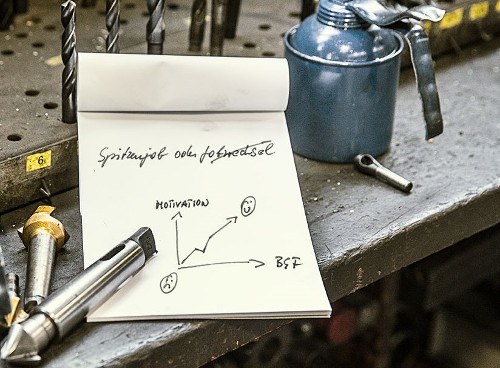 Spitzenjob oder Jobwechsel
MOTIVATION
BGF
6